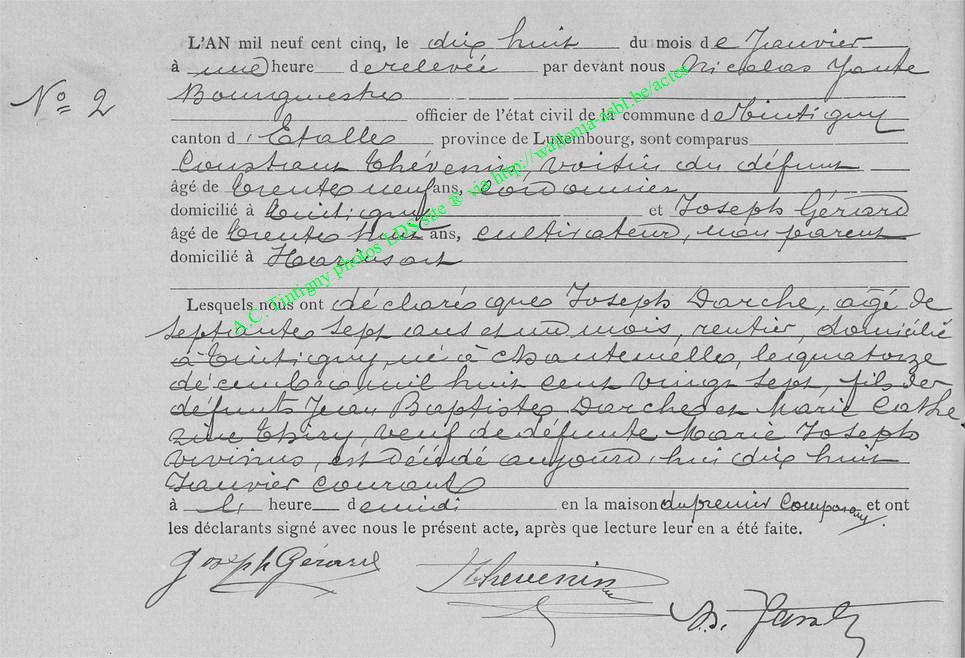 L'AN mil neuf cent cinq, le dix huit du mois de Janvier
à une heure de relevée par devant nous Nicolas
Nº 2
Bourgmestre
officier de l'état civil de la commune de Tintigny
canton d'Etalle province de Luxembourg, sont comparus
Constant Thévenin, voisin du défunt
âgé de trente neuf ans, cordonnier
domicilié à Tintigny et Joseph Gérard
âgé de trente huit ans, cultivateur, non parent
domicilié à Harinsart
Lesquels nous ont déclaré que Joseph Darche, agé de
septante sept ans et un mois, rentier, domicilié
à Tintigny, né à Chantemelle, le quatorze
décembre mil huit cent vingt sept, fils des
défunts Jean Baptiste Darche et Marie Cathe
rine Thiry, veuf de défunte Marie Joseph
Vivinus, est décédé aujourd'hui dix huit
Janvier courant
à l' heure de midi en la maison du premier comparant et ont
les déclarants signé avec nous le présent acte, après que lecture leur en a été faite.
Joseph Gérard Thevenin
A.C. Tintigny photos LDS site ® via http://wallonia-asbl.be/actes